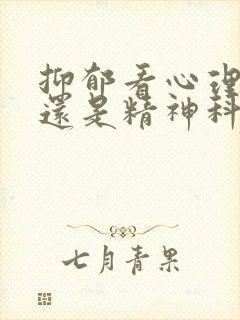 抑郁看心理
還是精神科
七月青果